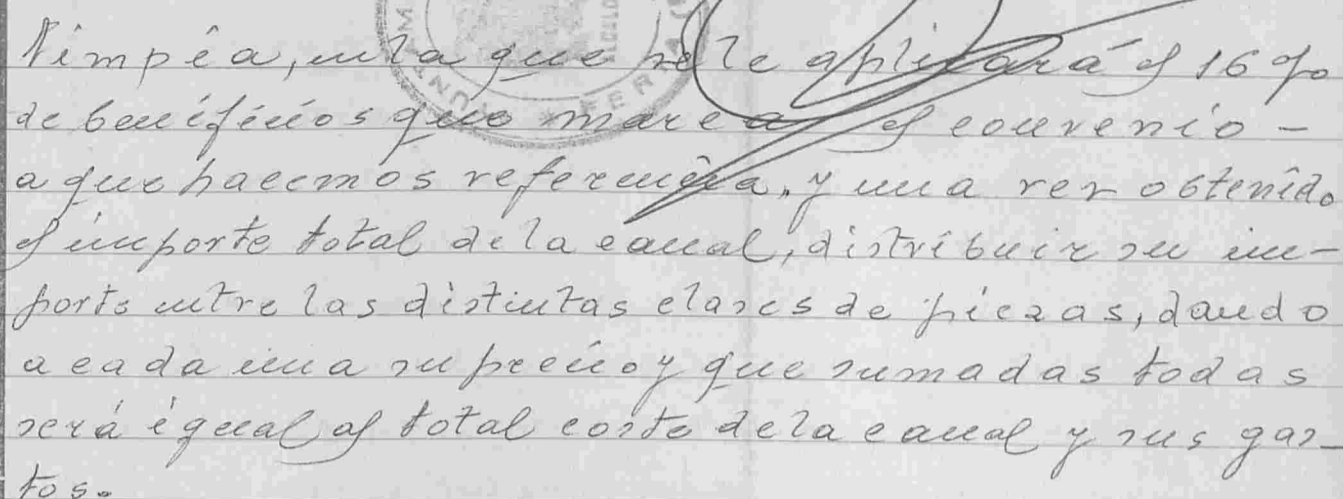 limpéa, en la que se le aplicará el 16 %
de beneficios que marca el convenio -
a que hacemos referencia, y una vez obtenido
el importe total de la canal, distribuir su im-
porte entre las distintas clases de piezas, dando
a cada una su precio y que sumadas todas
será igual al total coste de la canal y sus gas-
tos.